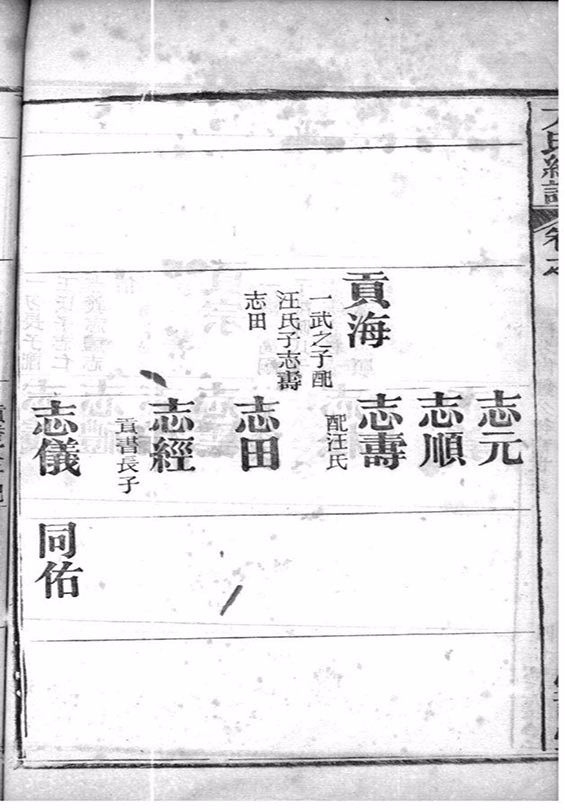 卷之
貢海
一武之子配
汪氏子志壽
志田
志元
志順
志壽
配汪氏
志田
志經
貢書長子
志儀
同佑